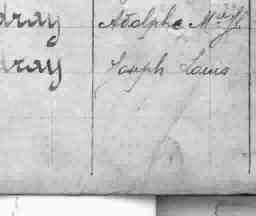 dray Adolphe M
dray Joseph Louis